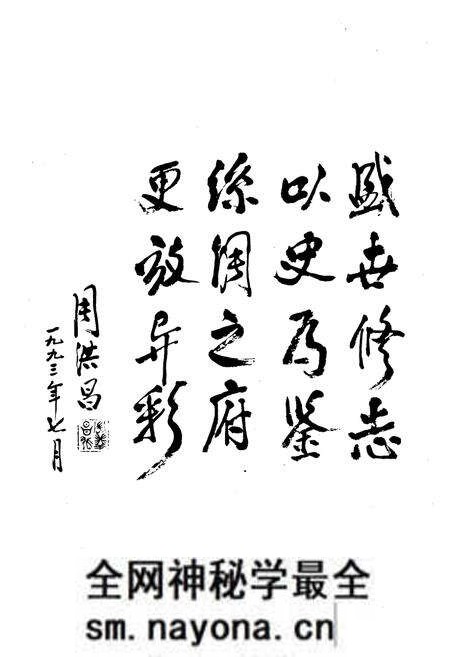 盛世修志
以史为鉴
絲绸之府
更放异彩
周洪昌
一九九三年七月
全网神秘学最全
sm.nayona.cn